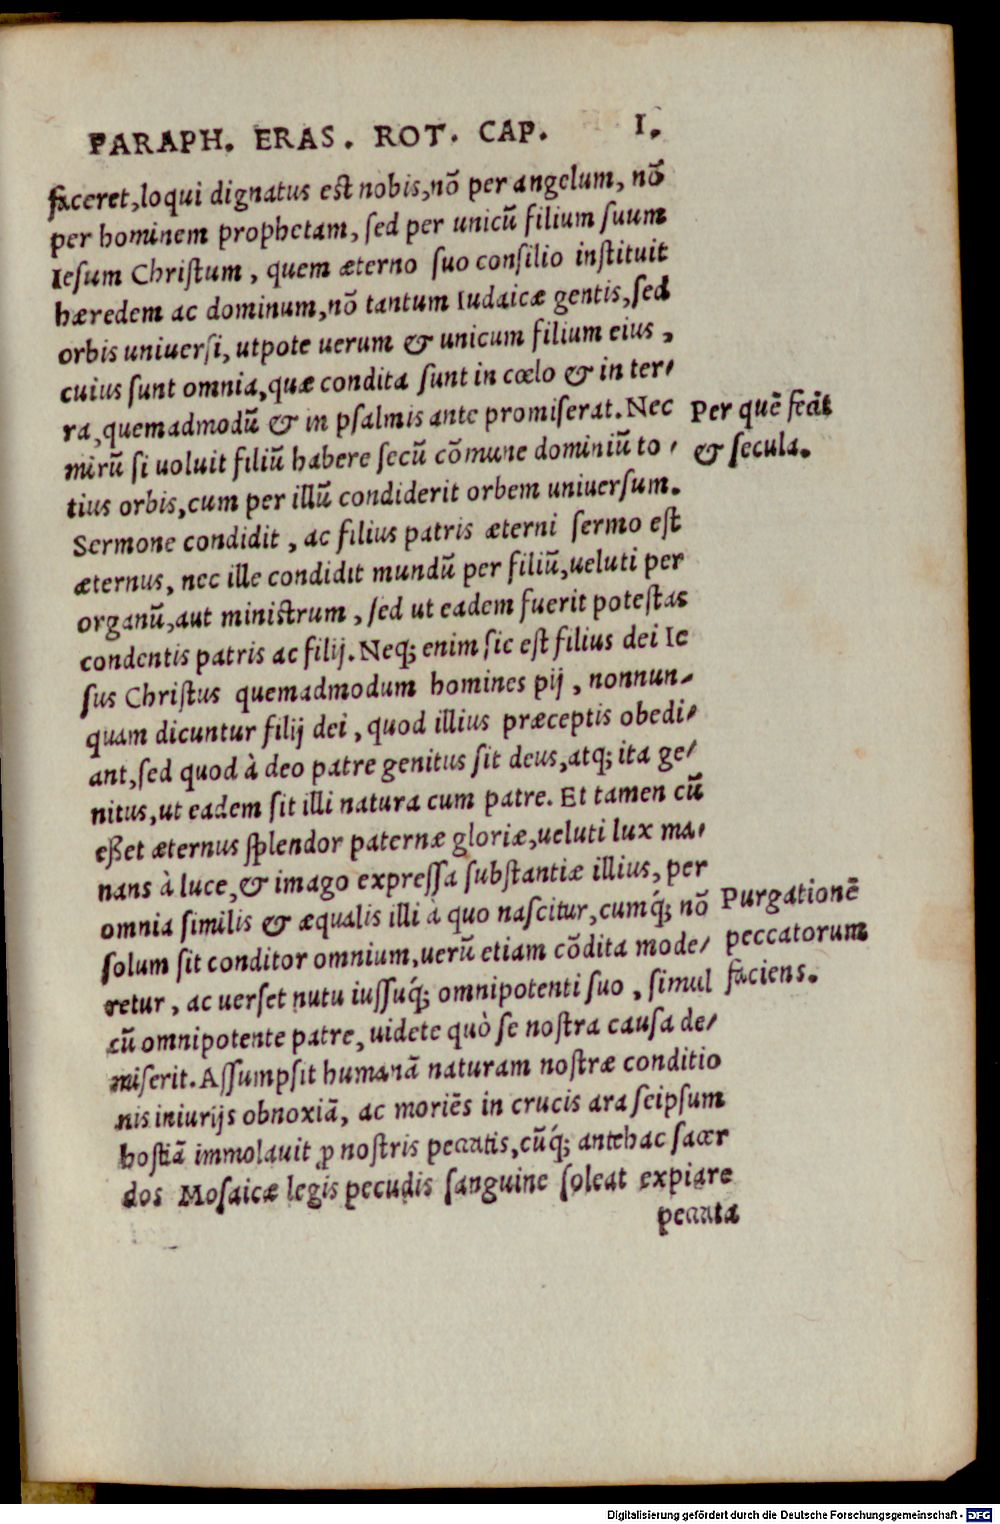 PARAPH. ERAS. ROT. CAP. I.
faceret,loqui dignatus est nobis,nõ per angelum, nõ
per hominem prophetam, sed per unicũ filium suum
Iesum Christum, quem æterno suo consilio instituit
hæredem ac dominum,nõ tantum Iudaicæ gentis,sed
orbis uniuersi, utpote uerum & unicum filium eius,
cuius sunt omnia,quæ condita sunt in cœlo & in ter/
ra,quemadmodũ & in psalmis ante promiserat. Nec
mirũ si uoluit filiũ habere secũ cõmune dominiũ to/
tius orbis,cum per illũ condiderit orbem uniuersum.
Sermone condidit, ac filius patris æterni sermo est
æternus, nec ille condidit mundũ per filiũ,ueluti per
organũ,aut ministrum, sed ut eadem fuerit potestas
condentis patris ac filij. Neq; enim sic est filius dei Ie
sus Christus quemadmodum homines pij, nonnun/
quam dicuntur filij dei, quod illius præceptis obedi/
ant,sed quod à deo patre genitus sit deus,atq; ita ge/
nitus,ut eadem sit illi natura cum patre. Et tamen cũ
eßet æternus splendor paternæ gloriæ,ueluti lux ma/
nans à luce,& imago expressa substantiæ illius, per
omnia similis & æqualis illi à quo nascitur,cumq́; nõ
solum sit conditor omnium,uerũ etiam cõdita mode/
retur, ac uerset nutu iussuq́; omnipotenti suo, simul
cũ omnipotente patre, uidete quò se nostra causa de/
miserit. Assumpsit humanã naturam nostræ conditio
nis iniurijs obnoxiã, ac moriẽs in crucis ara seipsum
hostiã immolauit ꝓ nostris peccatis,cũq́; antehac sacer
dos Mosaicæ legis pecudis sanguine soleat expiare
peccata
Per quẽ fecit
& secula.
Purgationẽ
peccatorum
faciens.
Digitalisierung gefördert durch die Deutsche Forschungsgemeinschaft - DFG